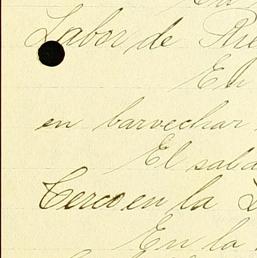 Labor de
En
en barvechar
El saba
Cerco en la
En la